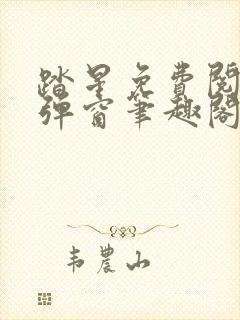 踏星免費閱
彈窗筆趣閣
韦農山